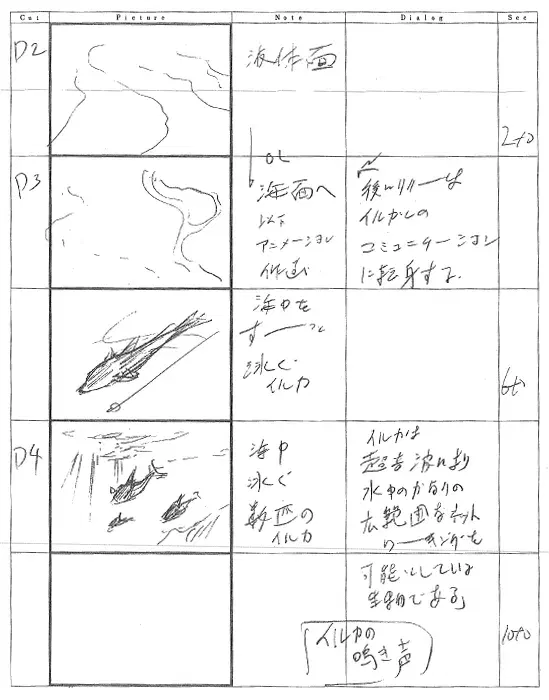 Cut Picture Note Dialog Sec
D2
液体面
2+0
OL
D3
海面へ
以下
アニメーション
後にリリーは
イルカとの
コミュニケーション
に転身する。
海中を
すーーっと
泳ぐ
イルカ
6+0
D4
海中
泳ぐ
数匹の
イルカ
イルカは
超音波により
水中のかなりの
広範囲なネット
ワーキングを
可能にしている
生物である」
イルカの
鳴き声
10+0